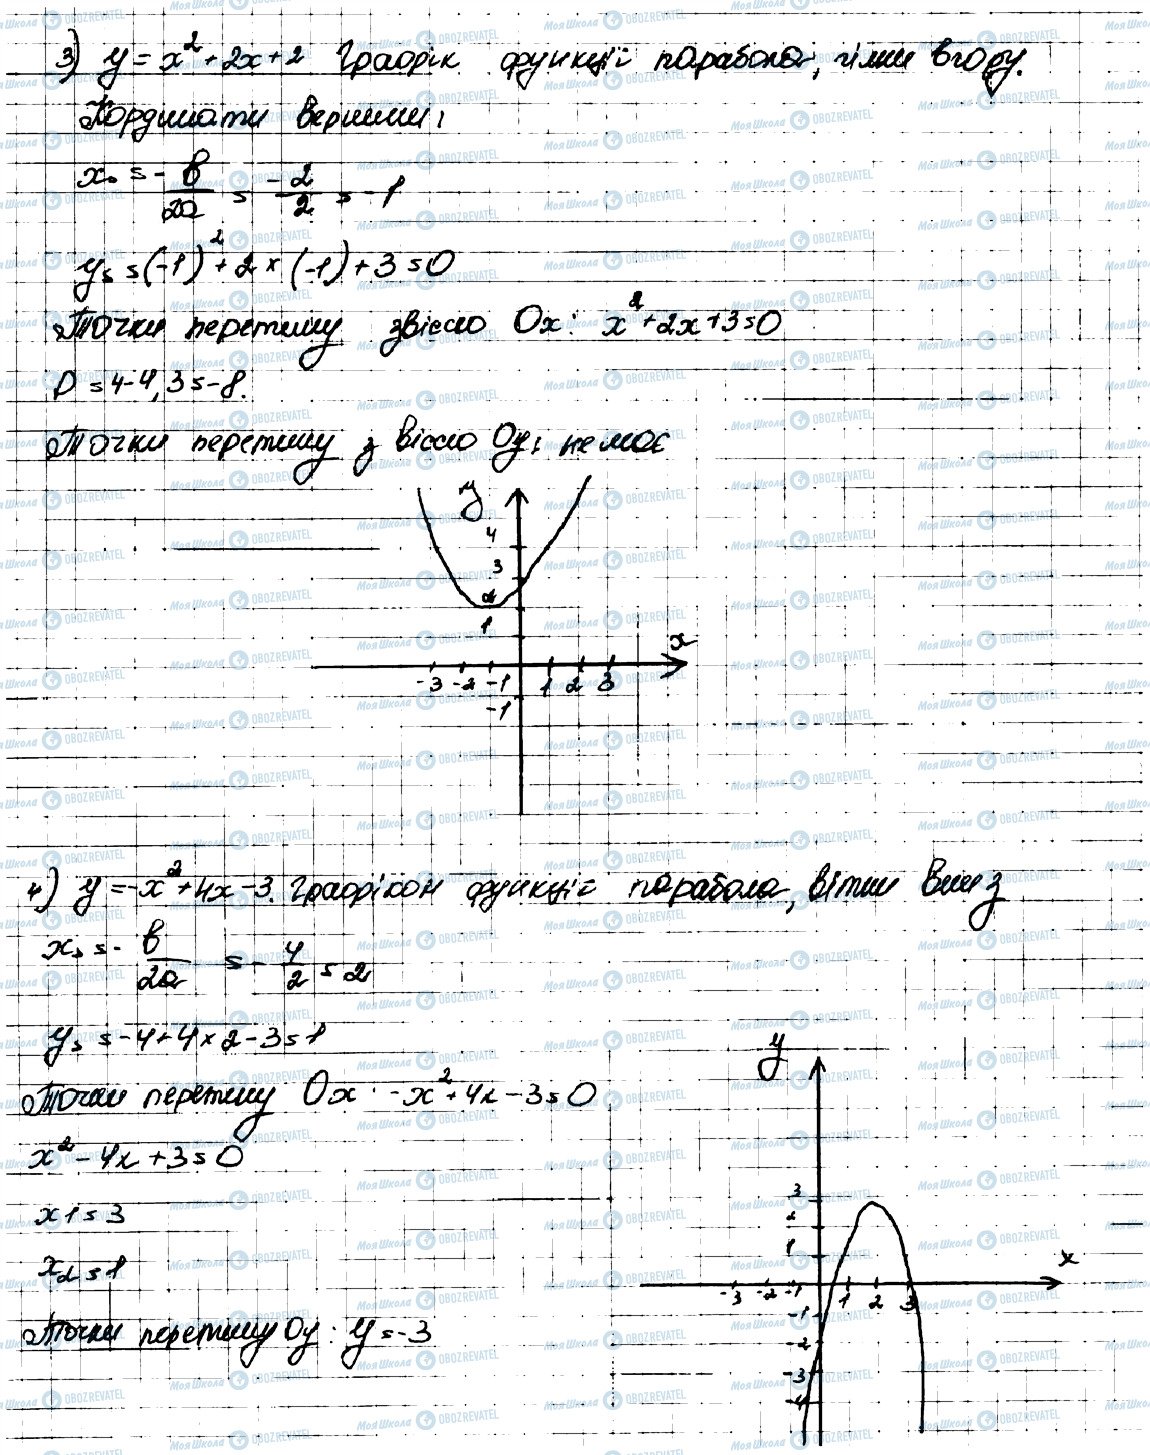 3) y = x² + 2x + 2 Графік функції парабола, гілки вгору.
Кординати вершини:
x₀ = - b/2a = -2/2 = -1
y₀ = (-1)² + 2 × (-1) + 3 = 0
Точки перетину з віссю Ox: x² + 2x + 3 = 0
D = 4 - 4, 3 = -8.
Точки перетину з віссю Oy: немає
y
4
3
2
1
x
-3 -2 -1 1 2 3
-1
4) y = -x² + 4x - 3. Графікон функції парабола, вітки вниз
x₀ = - b/2a = - 4/2 = 2
y₀ = -4 + 4 × 2 - 3 = 1
Точки перетину Ox: -x² + 4x - 3 = 0
x² - 4x + 3 = 0
x1 = 3
x2 = 1
Точки перетину Oy: y = -3
y
3
2
1
x
-3 -2 -1 1 2 3
-1
-2
-3
-4
МояШкола OBOZREVATEL